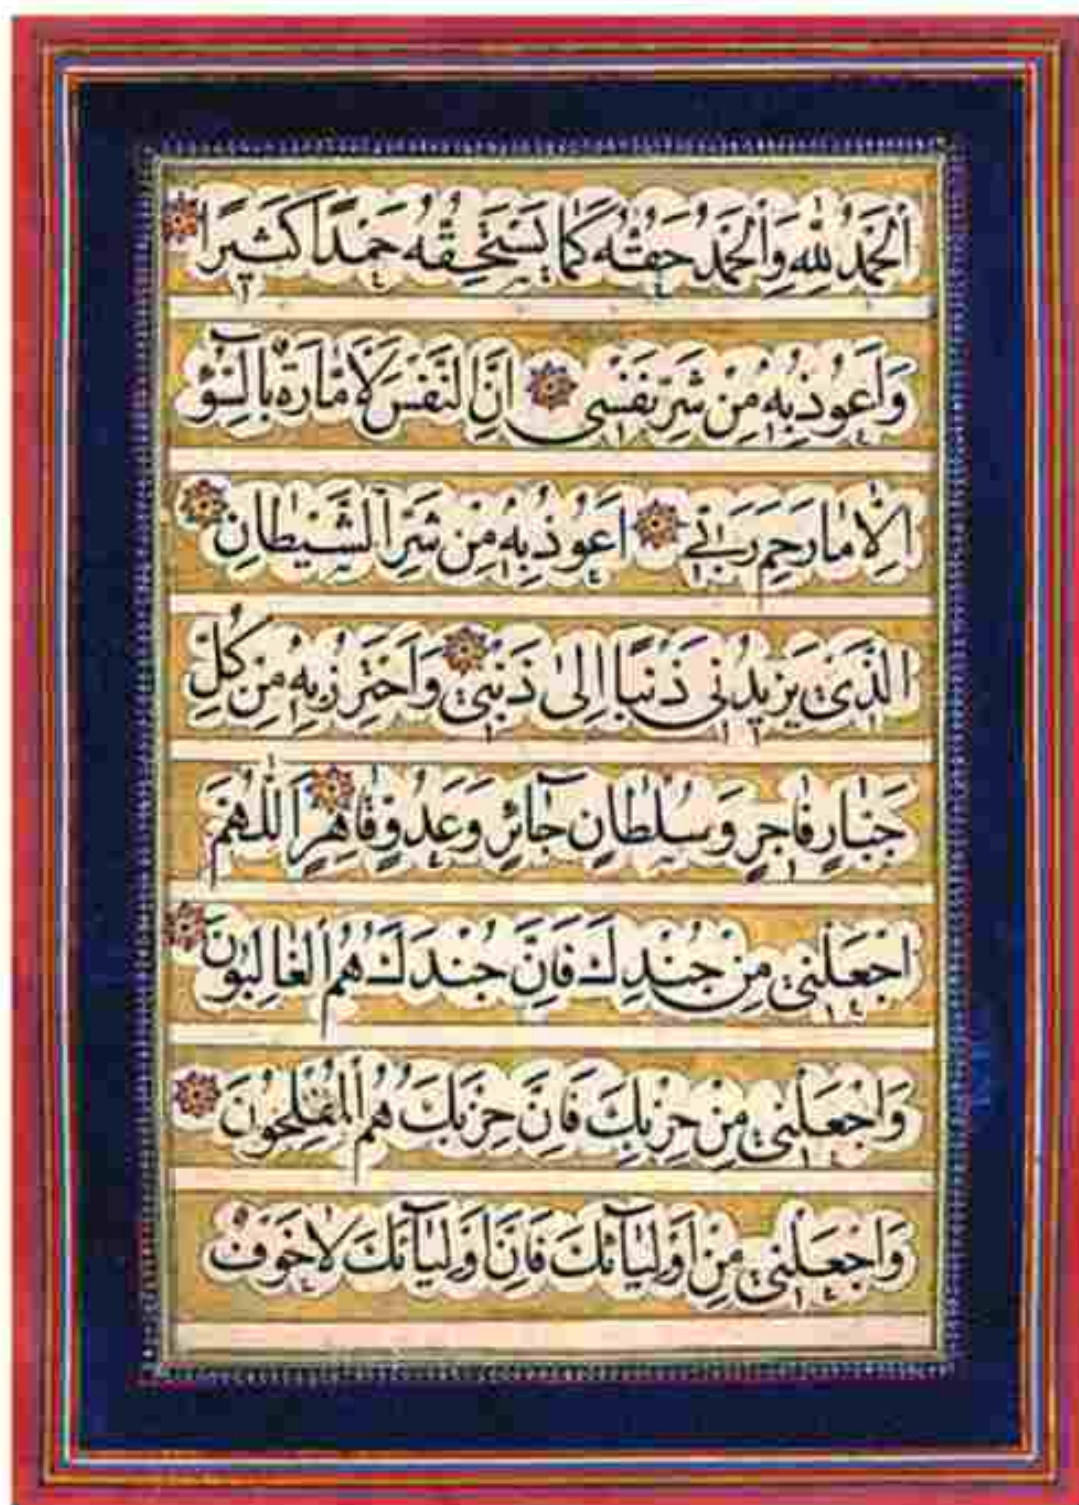 اَلْحَمْدُ لِلّٰهِ وَالْحَمْدُ حَقُّهُ كَمَا يَسْتَحِقُّهُ حَمْدًا كَثِيرًا
وَاَعُوذُ بِهِ مِنْ شَرِّ نَفْسِي اِنَّ النَّفْسَ لَاَمَّارَةٌ بِالسُّوٓءِ
اِلَّا مَا رَحِمَ رَبِّي اَعُوذُ بِهِ مِنْ شَرِّ الشَّيْطَانِ
الَّذِي يَزِيدُنِي ذَنْبًا اِلَى ذَنْبِي وَاَحْتَرِزُ بِهِ مِنْ كُلِّ
جَبَّارٍ فَاجِرٍ وَسُلْطَانٍ جَآئِرٍ وَعَدُوٍّ قَاهِرٍ اَللّٰهُمَّ
اجْعَلْنِي مِنْ جُنْدِكَ فَاِنَّ جُنْدَكَ هُمُ الْغَالِبُونَ
وَاجْعَلْنِي مِنْ حِزْبِكَ فَاِنَّ حِزْبَكَ هُمُ الْمُفْلِحُونَ
وَاجْعَلْنِي مِنْ اَوْلِيَآئِكَ فَاِنَّ اَوْلِيَآئَكَ لَا خَوْفٌ